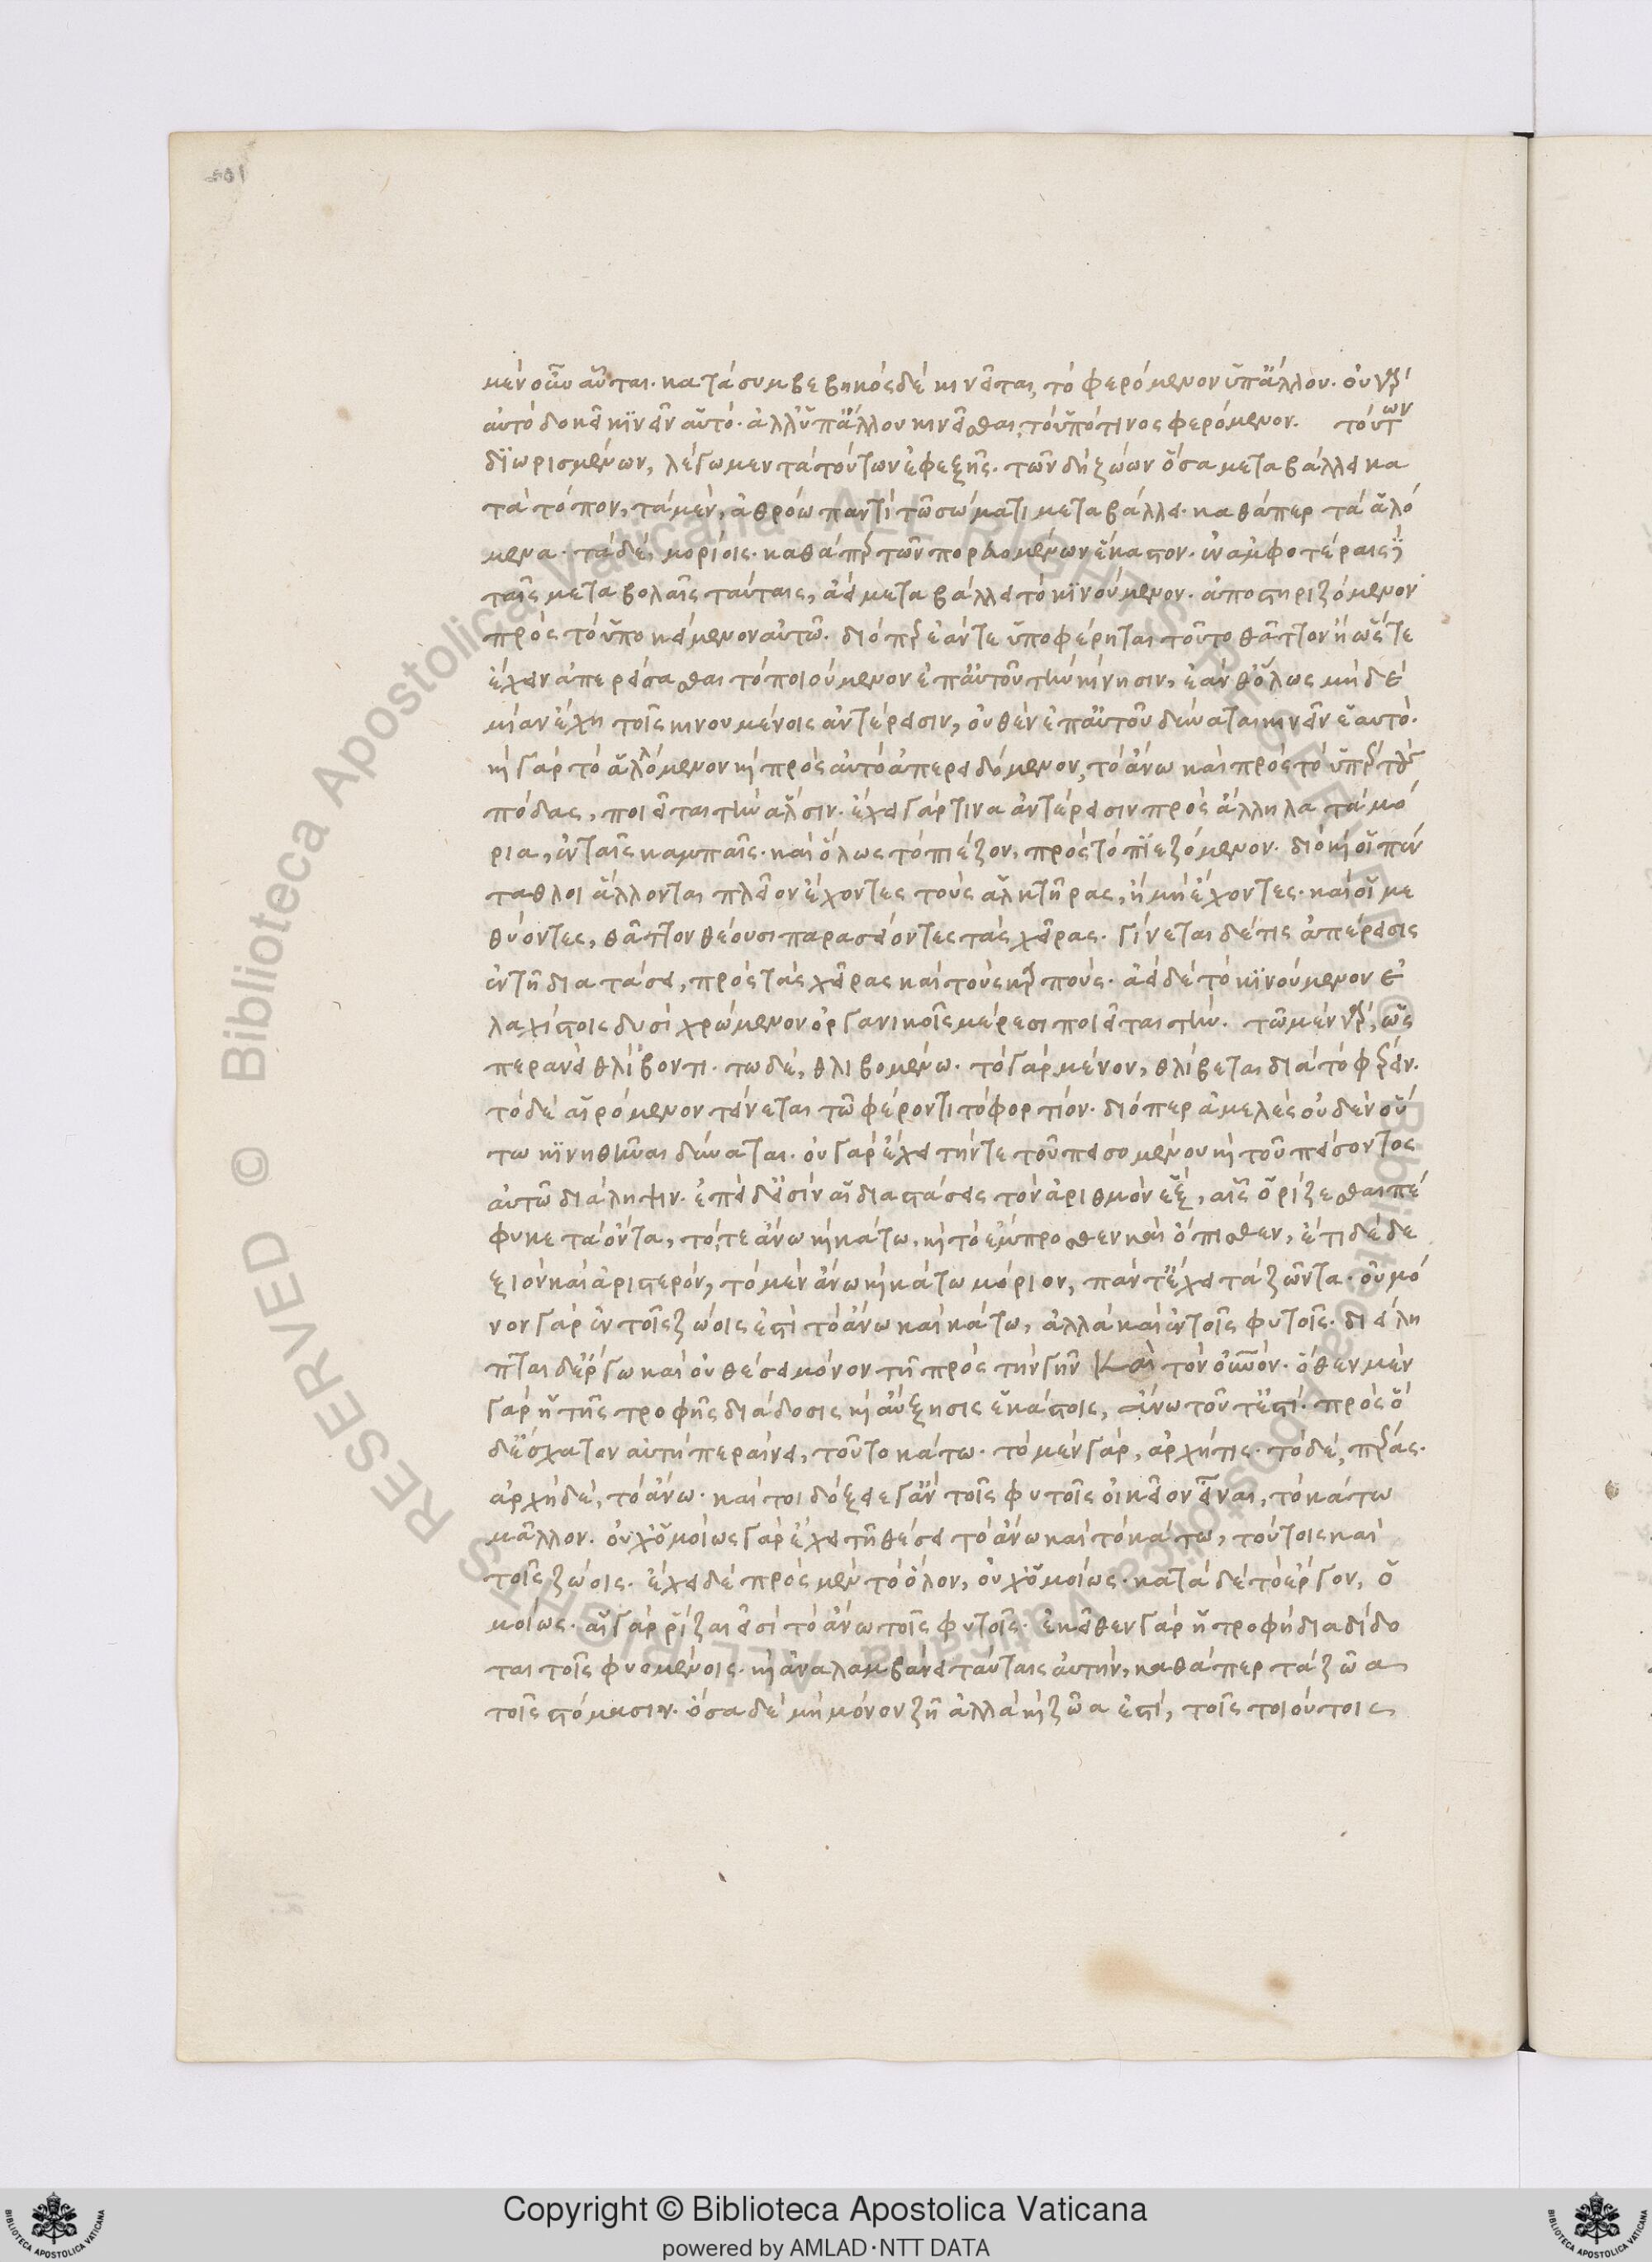 μὲν οὖν αὗται. κατὰ συμβεβηκὸς δὲ κινεῖται, τὸ φερόμενον ὑπ' ἄλλου. οὐ γὰρ
αὐτὸ δοκεῖ κϊνεῖν αὑτό. ἀλλ' ὑπ' ἄλλου κινεῖσθαι, τὸ ὑπό τινος φερόμενον. τούτων
δϊωρισμένων, λέγωμεν τὰ τούτων ἐφεξῆς. τῶν δὴ ζώων ὅσα μεταβάλλει κα
τὰ τόπον, τὰ μὲν, ἀθρόω παντὶ τῶ σώματι μεταβάλλει. καθάπερ τὰ ἁλό
μενα. τὰ δὲ, μορίοις. καθάπερ τῶν πορευομένων ἕκαστον. ἐν ἀμφοτέραις δὲ
ταῖς μεταβολαῖς ταύταις, ἀεὶ μεταβάλλει τὸ κϊνούμενον. ἀποστηριζόμενον
πρὸς τὸ ὑποκείμενον αὐτῶ. διόπερ ἐάν τε ὑποφέρηται τοῦτο θᾶττον ἢ ὥστε
ἔχειν ἀπερείσασθαι τὸ ποιούμενον ἐπ' αὐτοῦ τὴν κίνησιν, ἐάν θ' ὅλως μηδε
μίαν ἔχη τοῖς κινουμένοις ἀντέρεισιν, οὐθὲν ἐπ' αὐτοῦ δύναται κινεῖν ἑαυτό.
καὶ γὰρ τὸ ἁλλόμενον καὶ πρὸς αὐτὸ ἀπερειδόμενον, τὸ ἄνω καὶ πρὸς τὸ ὑπὸ τοὺς
πόδας, ποιεῖται τὴν ἅλσιν. ἔχει γάρ τινα ἀντέρεισιν πρὸς ἄλληλα τὰ μό
ρια, ἐν ταῖς καμπαῖς. καὶ ὅλως τὸ πιέζον, πρὸς τὸ πϊεζόμενον. διὸ καὶ οἱ πέν
ταθλοι ἅλλονται πλεῖον ἔχοντες τοὺς ἁλκτῆρας, ἢ μὴ ἔχοντες. καὶ οἱ με
θύοντες, θᾶττον θέουσι παρασείοντες τὰς χεῖρας. γίνεται δέ τις ἀπέρεισις
ἐν τῆ διατάσει, πρὸς τὰς χεῖρας καὶ τοὺς καρπούς. ἀεὶ δὲ τὸ κϊνούμενον ἐ
λαχίστοις δυσὶ χρώμενον ὀργανικοῖς μέρεσι ποιεῖται τὴν. τῶ μὲν γὰρ, ὥς
περανεὶ θλίβοντι. τῶ δὲ, θλιβομένω. τὸ γὰρ μένον, θλίβεται διὰ τὸ φέρειν.
τὸ δὲ αἱρόμενον τείνεται τῶ φέροντι τὸ φορτίον. διόπερ ἀμελὲς οὐδὲν οὕ
τω κϊνηθῆναι δύναται. οὐ γὰρ ἔχει τήν τε τοῦ πεισομένου καὶ τοῦ πείσοντος
αὐτῶ διάληψιν. ἐπεὶ δ' εἰσὶν αἱ διαστάσεις τὸν ἀριθμὸν ἕξ, αἷς ὁρίζεσθαι πέ
φυκε τὰ ὄντα, τό τε ἄνω καὶ κάτω, καὶ τὸ ἔμπροσθεν καὶ ὄπισθεν, ἔτι δὲ δε
ξιὸν καὶ ἀριστερόν, τὸ μὲν ἄνω καὶ κάτω μόριον, πάντ' ἔχει τὰ ζῶντα. οὐ μό
νον γὰρ ἐν τοῖς ζώοις ἐστὶ τὸ ἄνω καὶ κάτω, ἀλλὰ καὶ ἐν τοῖς φυτοῖς. διείλη
πται δ' ἔργω καὶ οὐ θέσει μόνον τῆ πρὸς τὴν γῆν καὶ τὸν οὐρανόν. ὅθεν μὲν
γὰρ ἡ τῆς τροφῆς διάδοσις καὶ αὔξησις ἑκάστοις, ἄνω τοῦτ' ἐστί. πρὸς ὃ
δ' ἔσχατον αὐτὴ περαίνει, τοῦτο κάτω. τὸ μὲν γὰρ, ἀρχή τις. τὸ δὲ, πέρας.
ἀρχὴ δὲ, τὸ ἄνω. καί τοι δόξειε γ' ἂν τοῖς φυτοῖς οἰκεῖον εἶναι, τὸ κάτω
μᾶλλον. οὐχ ὁμοίως γὰρ ἔχει τῆ θέσει τὸ ἄνω καὶ τὸ κάτω, τούτοις καὶ
τοῖς ζώοις. ἔχει δὲ πρὸς μὲν τὸ ὅλον, οὐχ ὁμοίως. κατὰ δὲ τὸ ἔργον, ὁ
μοίως. αἱ γὰρ ῥίζαι εἰσὶ τὸ ἄνω τοῖς φυτοῖς. ἐκεῖθεν γὰρ ἡ τροφὴ διαδίδο
ται τοῖς φυομένοις. καὶ ἀναλαμβάνει ταύταις αὐτήν, καθάπερ τὰ ζῶα
τοῖς στόμασιν. ὅσα δὲ μὴ μόνον ζῆ ἀλλὰ καὶ ζῶα ἐστί, τοῖς τοιούτοις
Copyright © Biblioteca Apostolica Vaticana
powered by AMLAD·NTT DATA